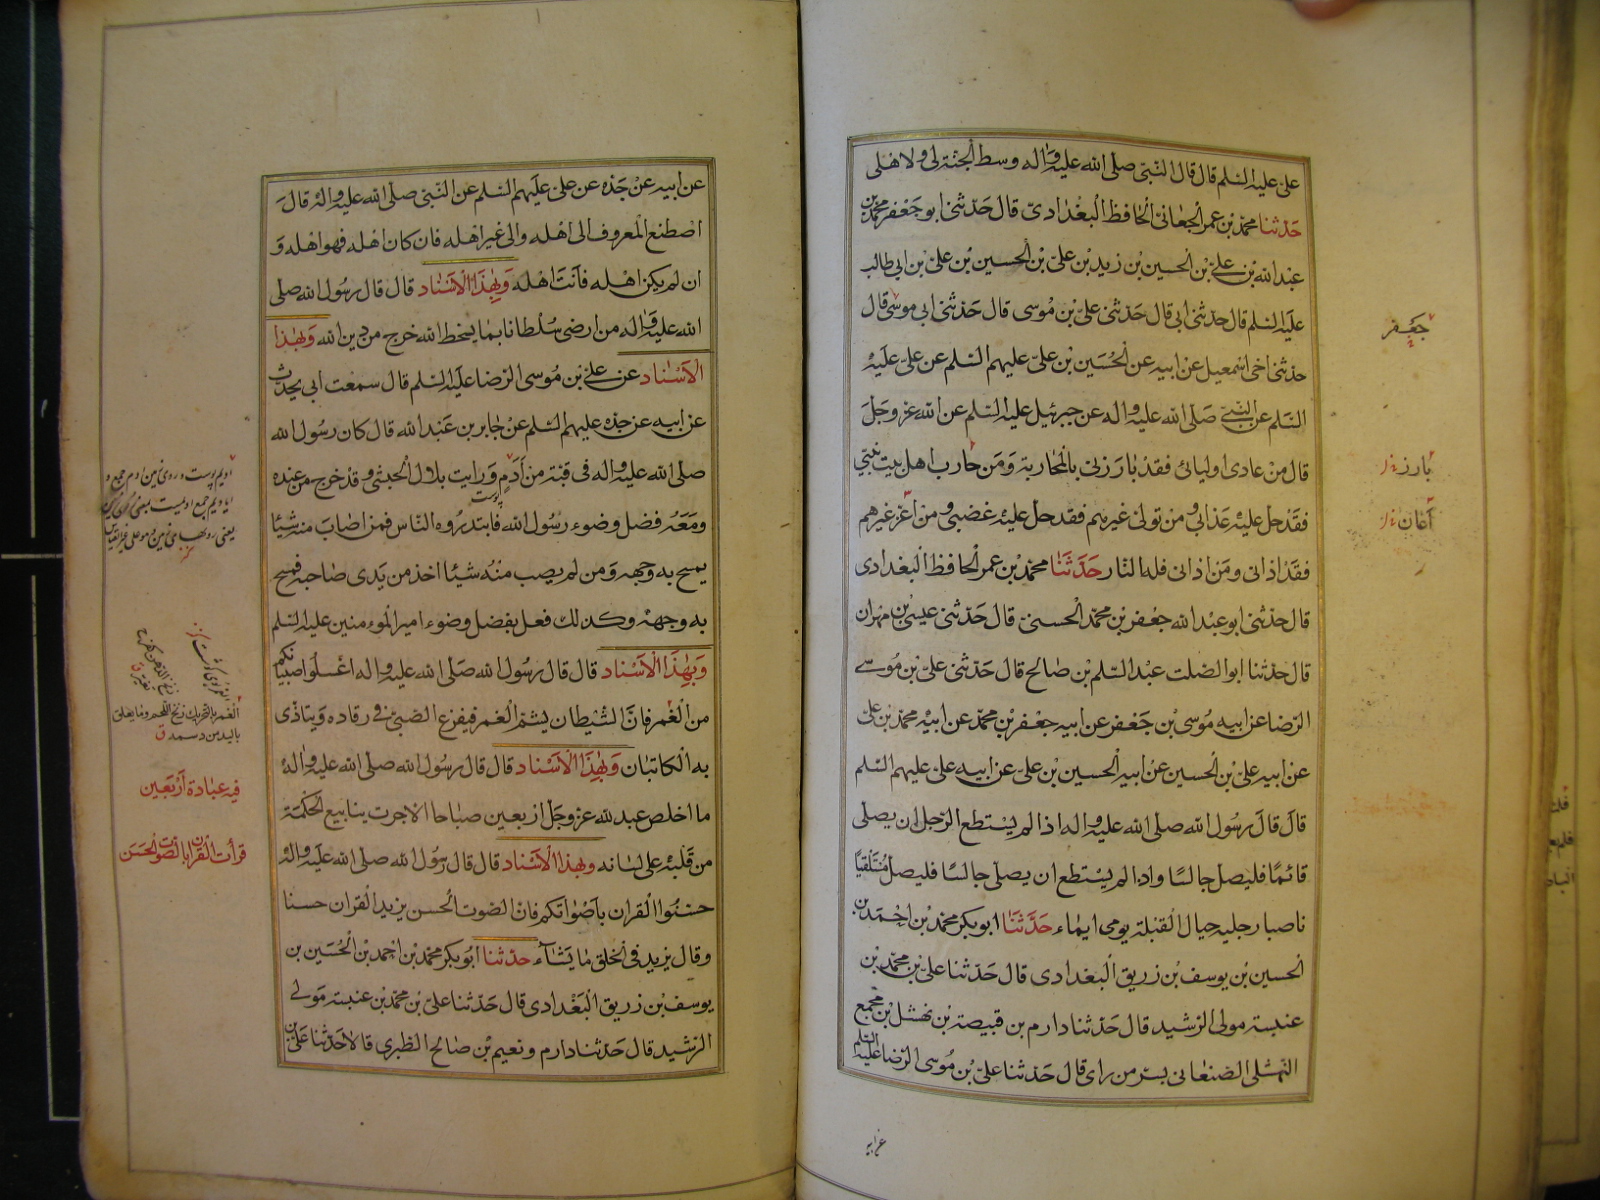 علیّ علیه السّلم قال قال النّبی صلّی الله علیه واله وسط الجنّة لی ولاهلی
حدّثنا محمّد بن عمر الجعابیّ الحافظ البغدادیّ قال حدّثنی ابو جعفر محمّد بن
عبدالله بن علیّ بن الحسین بن زید بن علیّ بن الحسین بن علیّ بن ابی طالب
علیه السّلم قال حدّثنی ابی قال حدّثنی علیّ بن موسی قال حدّثنی ابی موسی قال
حدّثنی اخی اسمعیل عن ابیه عن الحسین بن علیّ علیهم السّلم عن علیّ علیه
السّلم عن النّبیّ صلّی الله علیه واله عن جبرئیل علیه السّلم عن الله عزّ وجلّ
قال من عادی اولیائی فقد بارزنی بالمحاربة ومن حارب اهل بیت نبیّی
فقد حلّ علیه عذابی ومن تولّی غیرهم فقد حلّ علیه غضبی ومن اعزّ غیرهم
فقد اذانی ومن اذانی فله النّار حدّثنا محمّد بن عمر الحافظ البغدادی
قال حدّثنی ابو عبد الله جعفر بن محمّد الحسنیّ قال حدّثنی عیسی بن مهران
قال حدّثنا ابو الصّلت عبد السّلم بن صالح قال حدّثنی علیّ بن موسی
الرّضا عن ابیه موسی بن جعفر عن ابیه جعفر بن محمّد عن ابیه محمّد بن علیّ
عن ابیه علیّ بن الحسین عن ابیه الحسین بن علیّ عن ابیه علی علیهم السّلم
قال قال رسول الله صلّی الله علیه واله اذا لم یستطع الرّجل ان یصلّی
قائمًا فلیصلّ جالسًا واذا لم یستطع ان یصلّی جالسًا فلیصلّ مستلقیًا
ناصبا رجلیه حیال القبلة یومی ایماء حدّثنا ابو بکر محمّد بن احمد بن
الحسین بن یوسف بن زریق البغدادی قال حدّثنا علیّ بن محمّد بن
عنبسة مولی الرّشید قال حدّثنا دارم بن قبیصة بن نهشل بن مجمع
النّهشلی الصّنعانی بسرّ من رای قال حدّثنا علیّ بن موسی الرّضا علیه السّلم
عن ابیه
جعفر
بارز
عن ابیه عن جدّه عن علیّ علیهم السّلم عن النّبی صلّی الله علیه واله قال
اصطنع المعروف الی اهله والی غیر اهله فان کان اهله فهو اهله و
ان لم یکن اهله فانت اهله وبهذا الاسناد قال قال رسول الله صلی
الله علیه واله من ارضی سلطانا بما یسخط الله خرج من دین الله وبهذا
الاسناد عن علیّ بن موسی الرّضا علیه السّلم قال سمعت ابی یحدّث
عن ابیه عن جدّه علیهم السّلم عن جابر بن عبد الله قال کان رسول الله
صلی الله علیه واله فی قبّة من أدم ورایت بلال الحبشی وقد خرج من عنده
ومعه فضل وضوء رسول الله فابتدروه النّاس فمن اصاب منه شیئا
یمسح به وجهه ومن لم یصب منه شیئا اخذ من یدی صاحبه فمسح
به وجهه وکذلک فعل بفضل وضوء امیر المومنین علیه السّلم
وبهذا الاسناد قال قال رسول الله صلّی الله علیه واله اغسلوا صبیانکم
من الغمر فانّ الشّیطان یشمّ الغمر فیفزع الصّبیّ فی رقاده ویتاذّی
به الکاتبان وبهذا الاسناد قال قال رسول الله صلّی الله علیه واله
ما اخلص عبد لله عزّ وجلّ اربعین صباحا الا جرت ینابیع الحکمة
من قلبه علی لسانه وبهذا الاسناد قال قال رسول الله صلّی الله علیه واله
حسّنوا القران باصواتکم فانّ الصّوت الحسن یزید القران حسنا
وقال یزید فی الخلق ما یشآء حدّثنا ابوبکر محمّد بن احمد بن الحسین بن
یوسف بن زریق البغدادی قال حدّثنا علیّ بن محمّد بن عنبسة مولی
الرّشید قال حدّثنا دارم ونعیم بن صالح الطّبری قالا حدّثنا علیّ بن
الغمر بالتحریک زنخ اللحم وما یعلق
بالید من دسمه ق
فیه عبادة أربعین
قرأت القران بالصّوت الحسن